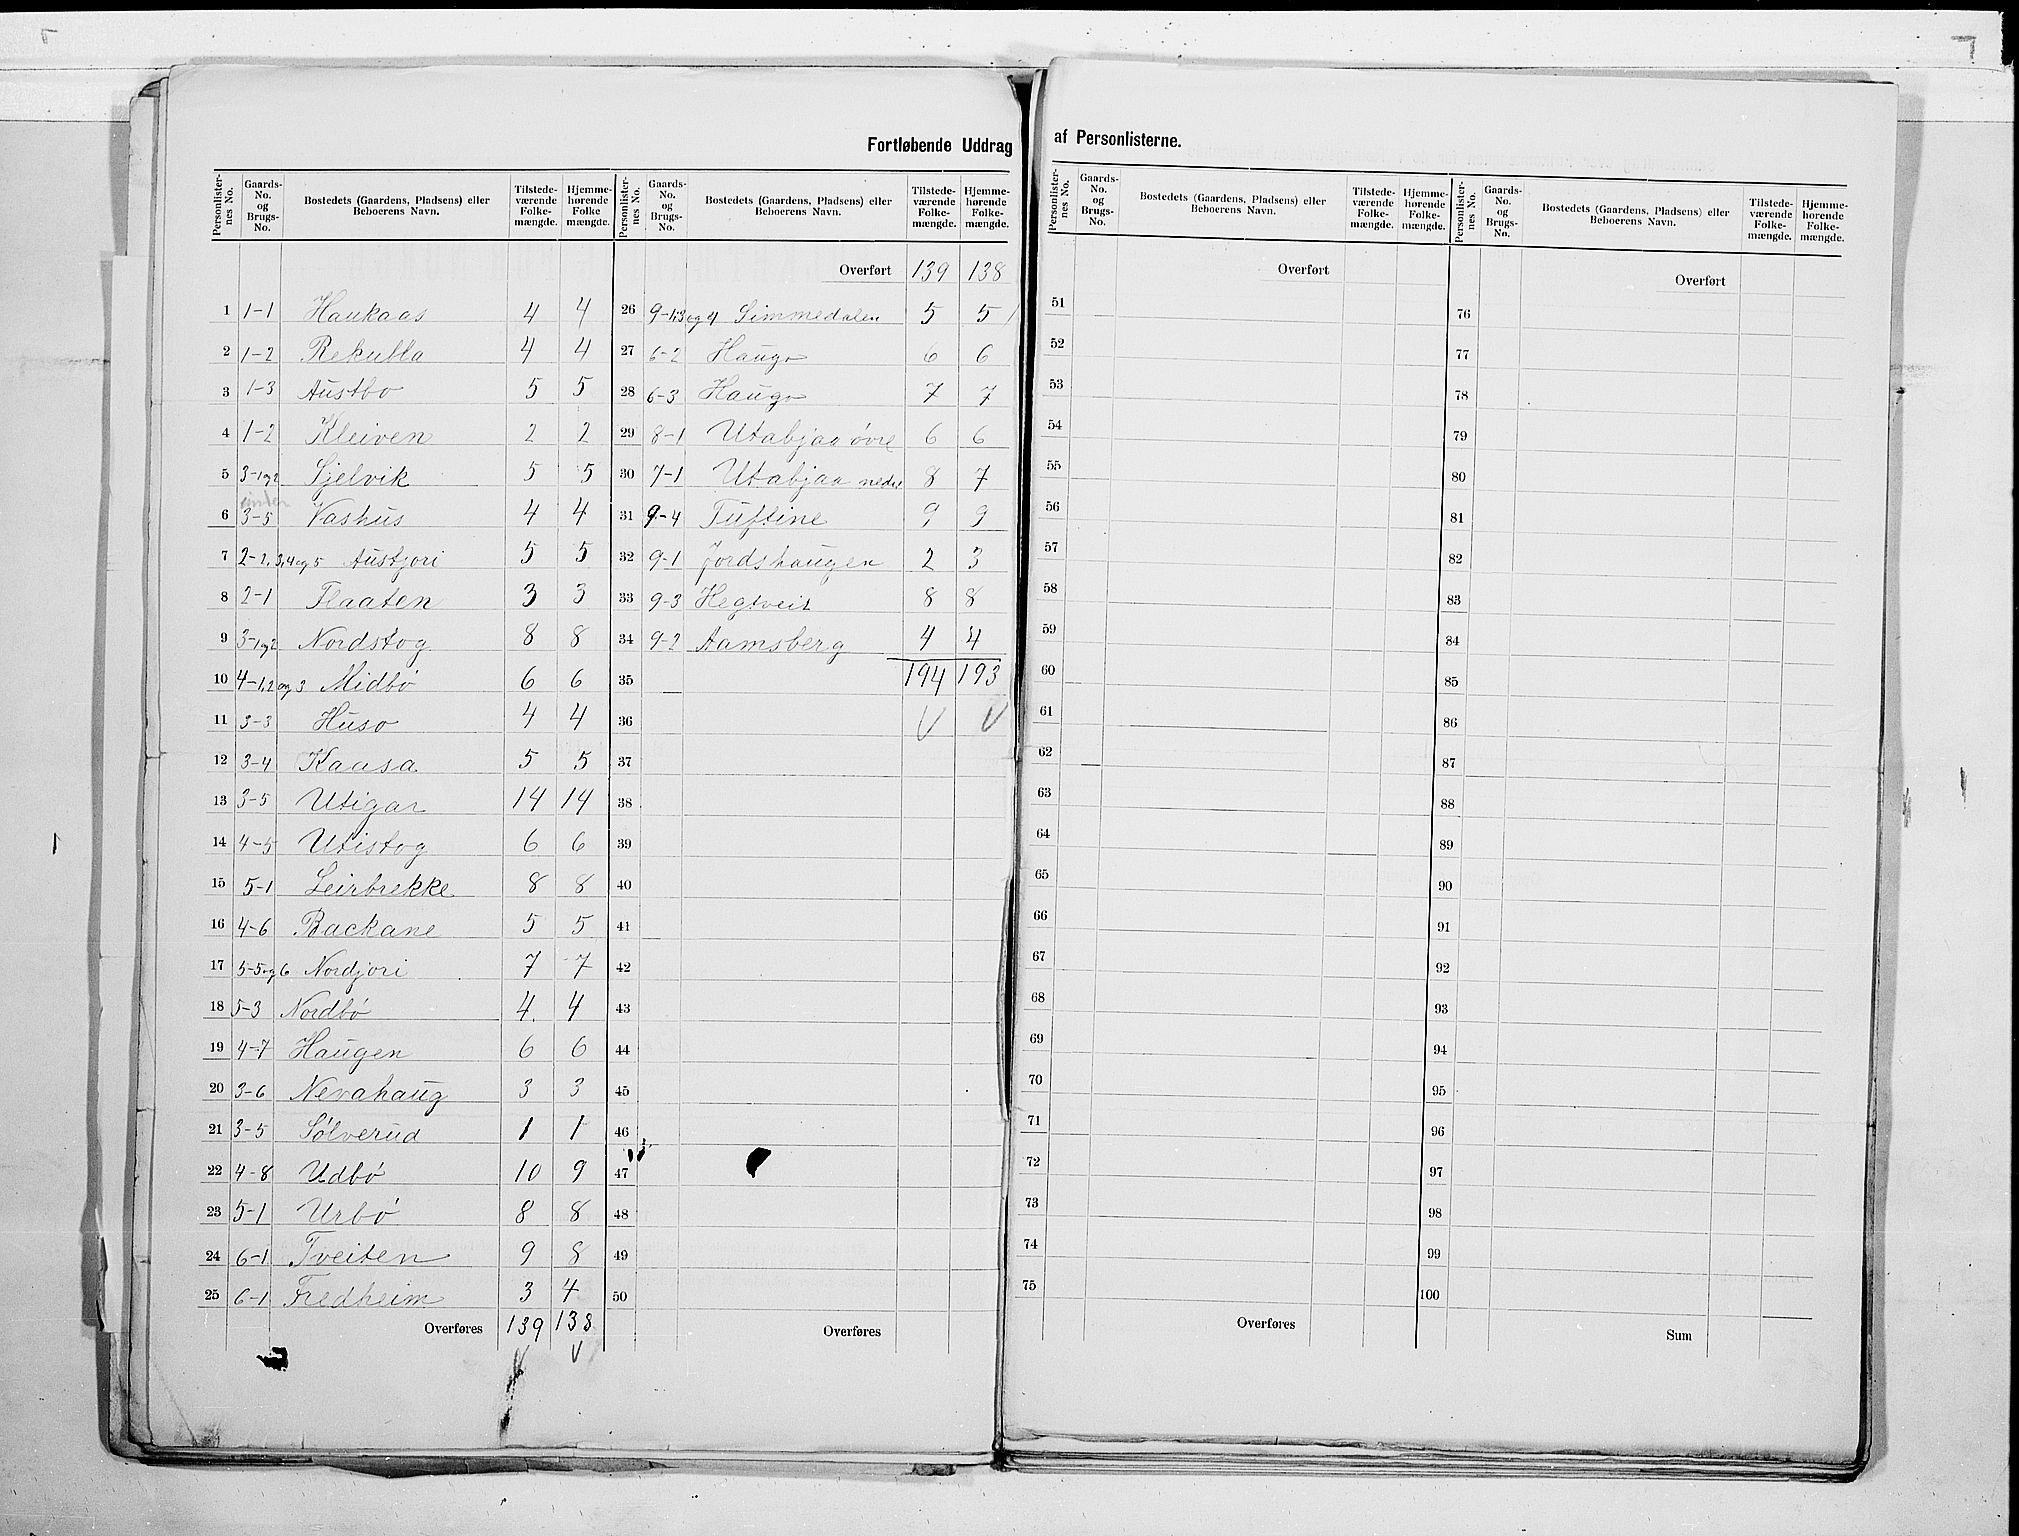 Fortløbende Uddrag af Personlisterne.
Personlister-nes No. Gaards-No. og Brugs-No. Bostedets (Gaardens, Pladsens) eller Beboerens Navn. Tilstede-værende Folke-mængde. Hjemme-hørende Folke mængde.
1 1-1 Haukaas 4 4
2 1-2 Rekulla 4 4
3 1-3 Austbo 5 5
4 1-2 Kleiven 2 2
5 3-1og2 Sjelvik 5 5
under
6 3-5 Vashus 4 4
7 2-2,3,4og5 Austjori 5 5
8 2-1 Flaaten 3 3
9 3-1og2 Nordstog 8 8
10 4-1,2 og 3 Midbó 6 6
11 3-3 Huso 4 4
12 3-4 Kaasa 5 5
13 3-5 Utigar 14 14
14 4-5 Utistog 6 6
15 5-1 Leirbrekke 8 8
16 4-6 Backane 5 5
17 5-5og6 Nordjori 7 7
18 5-3 Nordbó 4 4
19 4-7 Haugen 6 6
20 3-6 Nevahaug 3 3
21 3-5 Sólverud 1 1
22 4-8 Udbó 10 9
23 5-1 Urbó 8 8
24 6-1 Tveiten 9 8
25 6-1 Fredheim 3 4
Overføres 139 138
Personlister-nes No. Gaards-No. og Brugs-No. Bostedets (Gaardens, Pladsens) eller Beboerens Navn. Tilstede-værende Folke-mængde. Hjemme-hørende Folke-mængde.
Overført 139 138
26 9-1,3 og 4 Simmedalen 5 5
27 6-2 Haugo 6 6
28 6-3 Haugo 7 7
29 8-1 Utabjaa óvre 6 6
30 7-1 Utabjaa nedre 8 7
31 9-4 Tuftine 9 9
32 9-1 Jordshaugen 2 3
33 9-3 Hegtveit 8 8
34 9-2 Aamsberg 4 4
35 194 193
36
37
38
39
40
41
42
43
44
45
46
47
48
49
50
Overføres
Personlister-nes No. Gaards-No. og Brugs-No. Bostedets (Gaardens, Pladsens) eller Beboerens Navn. Tilstede-værende Folke-mængde. Hjemme-hørende Folke-mængde.
Overført
51
52
53
54
55
56
57
58
59
60
61
62
63
64
65
66
67
68
69
70
71
72
73
74
75
Overføres
Personlister-nes No. Gaards-No. og Brugs-No. Bostedets (Gaardens, Pladsens) eller Beboerens Navn. Tilstede-værende Folke-mængde. Hjemme-hørende Folke-mængde.
Overført
76
77
78
79
80
81
82
83
84
85
86
87
88
89
90
91
92
93
94
95
96
97
98
99
100
Sum